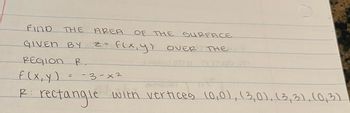 FIND THE AREA OF THE SURFACE
GIVEN BY z = f(x,y) OVER THE
REGION R.
f(x,y) = -3-x²
R: rectangle with vertices (0,0), (3,0), (3,3), (0,3)